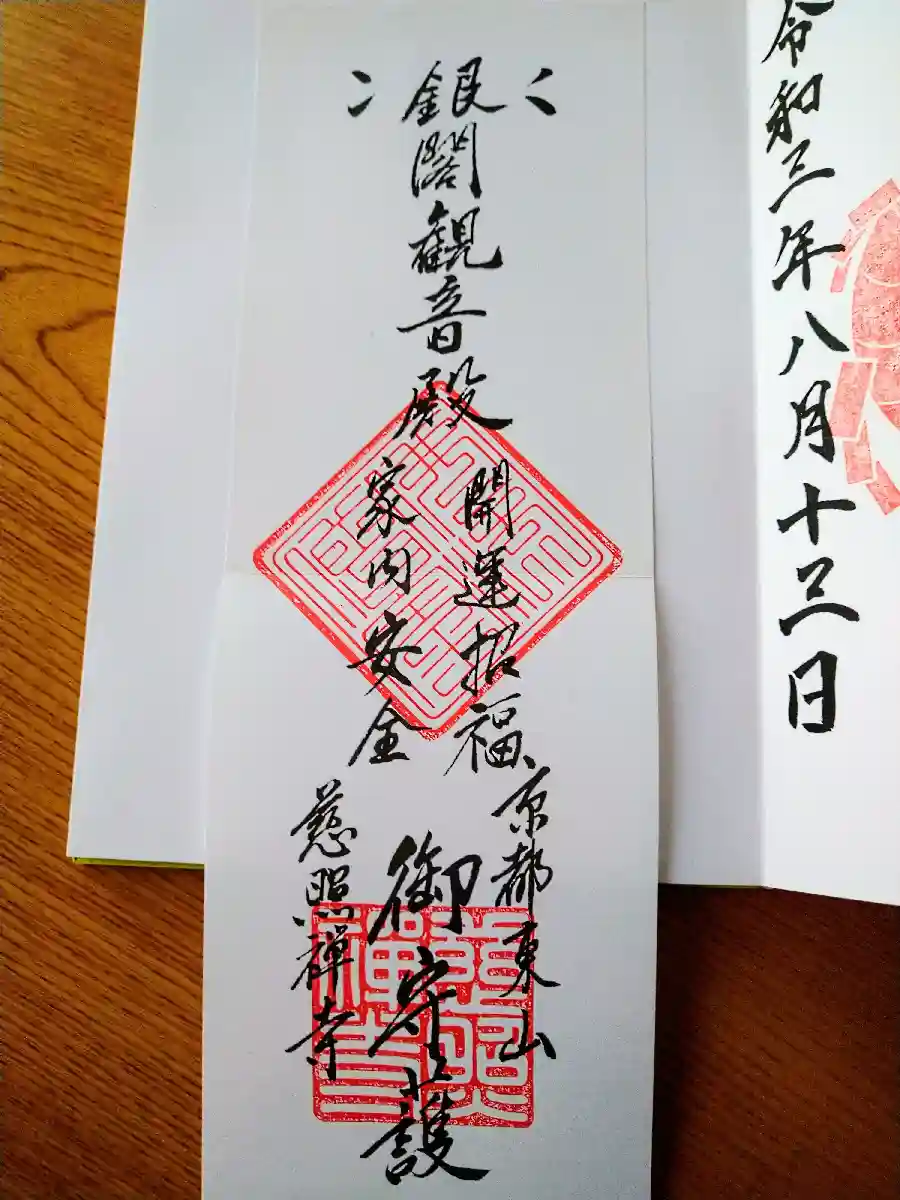 令和三年八月十三日
銀閣観音殿
開運招福
家内安全
京都東山
御守護
慈照禅寺
慈照禅寺